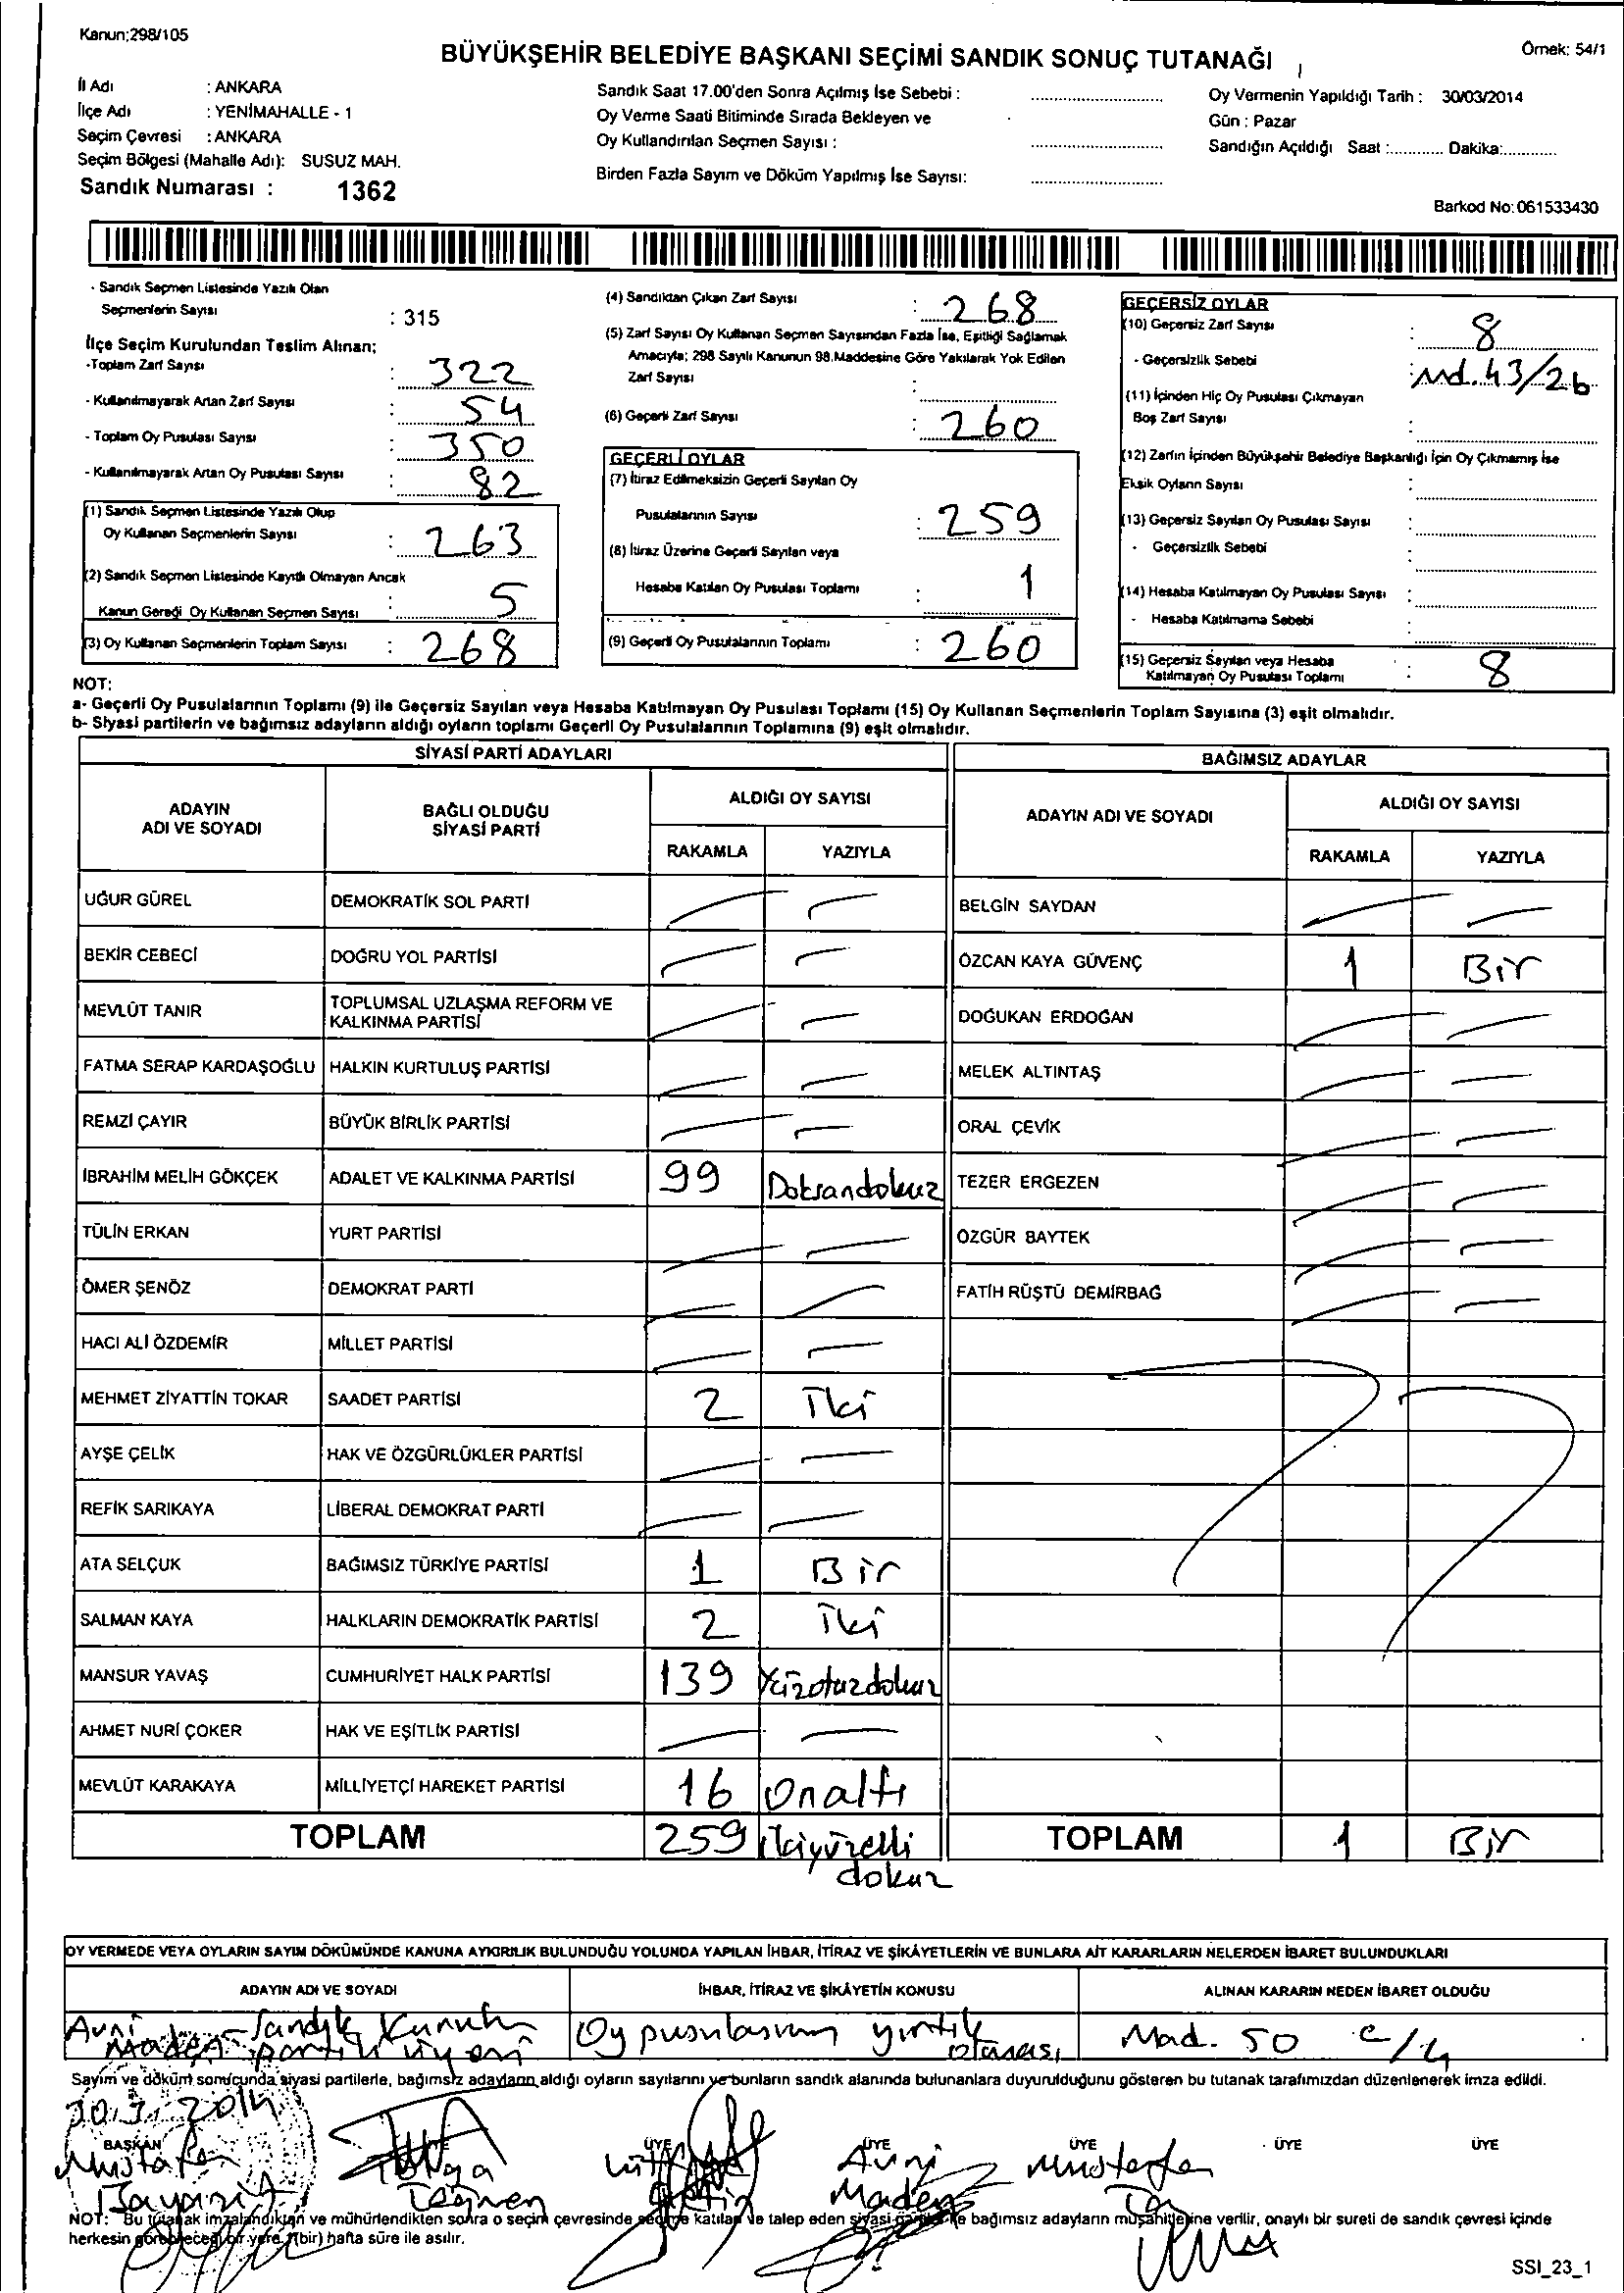 Kanun;298/105
BÜYÜKŞEHİR BELEDİYE BAŞKANI SEÇİMİ SANDIK SONUÇ TUTANAĞI
Örnek: 54/1
İl Adı : ANKARA
İlçe Adı : YENİMAHALLE - 1
Seçim Çevresi : ANKARA
Seçim Bölgesi (Mahalle Adı): SUSUZ MAH.
Sandık Numarası : 1362
Sandık Saat 17.00'den Sonra Açılmış İse Sebebi :
Oy Verme Saati Bitiminde Sırada Bekleyen ve
Oy Kullandırılan Seçmen Sayısı :
Birden Fazla Sayım ve Döküm Yapılmış İse Sayısı:
Oy Vermenin Yapıldığı Tarih : 30/03/2014
Gün : Pazar
Sandığın Açıldığı Saat :............ Dakika:............
Barkod No: 061533430
- Sandık Seçmen Listesinde Yazılı Olan
Seçmenlerin Sayısı : 315
İlçe Seçim Kurulundan Teslim Alınan;
-Toplam Zarf Sayısı : 322
- Kullanılmayarak Artan Zarf Sayısı : 54
- Toplam Oy Pusulası Sayısı : 350
- Kullanılmayarak Artan Oy Pusulası Sayısı : 82
(1) Sandık Seçmen Listesinde Yazılı Olup
Oy Kullanan Seçmenlerin Sayısı : 263
(2) Sandık Seçmen Listesinde Kayıtlı Olmayan Ancak
Kanun Gereği Oy Kullanan Seçmen Sayısı : 5
(3) Oy Kullanan Seçmenlerin Toplam Sayısı : 268
(4) Sandıktan Çıkan Zarf Sayısı : 268
(5) Zarf Sayısı Oy Kullanan Seçmen Sayısından Fazla İse, Eşitliği Sağlamak
Amacıyla; 298 Sayılı Kanunun 98.Maddesine Göre Yakılarak Yok Edilen
Zarf Sayısı :
(6) Geçerli Zarf Sayısı : 260
GEÇERLİ OYLAR
(7) İtiraz Edilmeksizin Geçerli Sayılan Oy
Pusulalarının Sayısı : 259
(8) İtiraz Üzerine Geçerli Sayılan veya
Hesaba Katılan Oy Pusulası Toplamı : 1
(9) Geçerli Oy Pusulalarının Toplamı : 260
GEÇERSİZ OYLAR
(10) Geçersiz Zarf Sayısı : 8
- Geçersizlik Sebebi : Md. 43/2b
(11) İçinden Hiç Oy Pusulası Çıkmayan
Boş Zarf Sayısı :
(12) Zarfın İçinden Büyükşehir Belediye Başkanlığı İçin Oy Çıkmamış İse
Eksik Oyların Sayısı :
(13) Geçersiz Sayılan Oy Pusulası Sayısı :
- Geçersizlik Sebebi
(14) Hesaba Katılmayan Oy Pusulası Sayısı :
- Hesaba Katılmama Sebebi
(15) Geçersiz Sayılan veya Hesaba
Katılmayan Oy Pusulası Toplamı : 8
NOT:
a- Geçerli Oy Pusulalarının Toplamı (9) ile Geçersiz Sayılan veya Hesaba Katılmayan Oy Pusulası Toplamı (15) Oy Kullanan Seçmenlerin Toplam Sayısına (3) eşit olmalıdır.
b- Siyasi partilerin ve bağımsız adayların aldığı oyların toplamı Geçerli Oy Pusulalarının Toplamına (9) eşit olmalıdır.
SİYASİ PARTİ ADAYLARI
ADAYIN ADI VE SOYADI BAĞLI OLDUĞU SİYASİ PARTİ ALDIĞI OY SAYISI
RAKAMLA YAZIYLA
UĞUR GÜREL DEMOKRATİK SOL PARTİ
BEKİR CEBECİ DOĞRU YOL PARTİSİ
MEVLÜT TANIR TOPLUMSAL UZLAŞMA REFORM VE KALKINMA PARTİSİ
FATMA SERAP KARDAŞOĞLU HALKIN KURTULUŞ PARTİSİ
REMZİ ÇAYIR BÜYÜK BİRLİK PARTİSİ
İBRAHİM MELİH GÖKÇEK ADALET VE KALKINMA PARTİSİ 99 Doksandokuz
TÜLİN ERKAN YURT PARTİSİ
ÖMER ŞENÖZ DEMOKRAT PARTİ
HACI ALİ ÖZDEMİR MİLLET PARTİSİ
MEHMET ZİYATTİN TOKAR SAADET PARTİSİ 2 İki
AYŞE ÇELİK HAK VE ÖZGÜRLÜKLER PARTİSİ
REFİK SARIKAYA LİBERAL DEMOKRAT PARTİ
ATA SELÇUK BAĞIMSIZ TÜRKİYE PARTİSİ 1 Bir
SALMAN KAYA HALKLARIN DEMOKRATİK PARTİSİ 2 İki
MANSUR YAVAŞ CUMHURİYET HALK PARTİSİ 139 Yüzotuzdokuz
AHMET NURİ ÇOKER HAK VE EŞİTLİK PARTİSİ
MEVLÜT KARAKAYA MİLLİYETÇİ HAREKET PARTİSİ 16 Onaltı
TOPLAM 259 ikiyüzelli dokuz
BAĞIMSIZ ADAYLAR
ADAYIN ADI VE SOYADI ALDIĞI OY SAYISI
RAKAMLA YAZIYLA
BELGİN SAYDAN
ÖZCAN KAYA GÜVENÇ 1 Bir
DOĞUKAN ERDOĞAN
MELEK ALTINTAŞ
ORAL ÇEVİK
TEZER ERGEZEN
ÖZGÜR BAYTEK
FATİH RÜŞTÜ DEMİRBAĞ
TOPLAM 1 Bir
OY VERMEDE VEYA OYLARIN SAYIM DÖKÜMÜNDE KANUNA AYKIRILIK BULUNDUĞU YOLUNDA YAPILAN İHBAR, İTİRAZ VE ŞİKÂYETLERİN VE BUNLARA AİT KARARLARIN NELERDEN İBARET BULUNDUKLARI
ADAYIN ADI VE SOYADI İHBAR, İTİRAZ VE ŞİKÂYETİN KONUSU ALINAN KARARIN NEDEN İBARET OLDUĞU
Avni Maden - Sandık Kurulu partili üyesi
Oy pusulasının yırtık olması
Mad. 50 c/4
Sayım ve döküm sonucunda siyasi partilerle, bağımsız adayların aldığı oyların sayılarını ve bunların sandık alanında bulunanlara duyurulduğunu gösteren bu tutanak tarafımızdan düzenlenerek imza edildi.
30.3.2014
BAŞKAN ÜYE ÜYE ÜYE ÜYE ÜYE
Mustafa
Tolga Teğmen
Avni Maden
Mustafa
NOT: Bu tutanak imzalandıktan ve mühürlendikten sonra o seçim çevresinde seçime katılan ve talep eden siyasi partiler ile bağımsız adayların müşahitlerine verilir, onaylı bir sureti de sandık çevresi içinde
herkesin görebileceği bir yere 1(bir) hafta süre ile asılır.
SSI_23_1